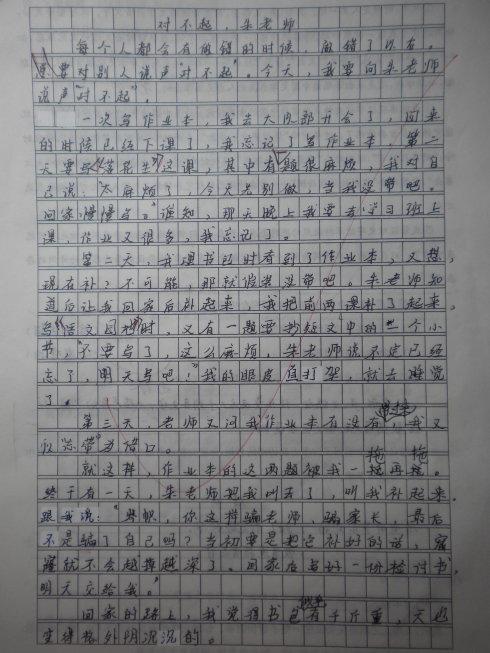 对不起，朱老师
每个人都会有做错的时候，做错了以后。
要对别人说声"对不起"。今天，我要向朱老师
说声"对不起"。
一次写作业本，我去大队部开会了，回来
的时候已经下课了，我忘记了写作业本，第二
天要写《落花生》这课，其中有题很麻烦，我对自
己说："太麻烦了，今天先别做，当我没带吧。
回家慢慢写。"谁知，那天晚上我要去学习班上
课，作业又很多，我忘记了。
第二天，我课书的时看到了作业本，又想，
现在补？不可能，那就假装没带吧。朱老师知
道后让我回家后补起来，我把前两课补了起来，
写《语文园地》时，又有一题要书短文中的一个小
节，"不要写了，这么麻烦，朱老师说不定已经
忘了，明天写吧！"我的眼皮直打架，就去睡觉
了。
第三天，老师又问我作业本有没有带来，我又
以忘带为借口。
就这样，作业本的这两题被我一拖再拖。
终于有一天，朱老师把我叫去了，叫我补起来。
跟我说："帆，你这样骗老师、骗家长，最后
不是骗了自己吗？当初要是把它补好的话，窟
窿就不会越撑越深了。回家后写好一份检讨书，
明天交给我。"
回家的路上，我觉得书包有千斤重，天也
变得格外阴沉沉的。